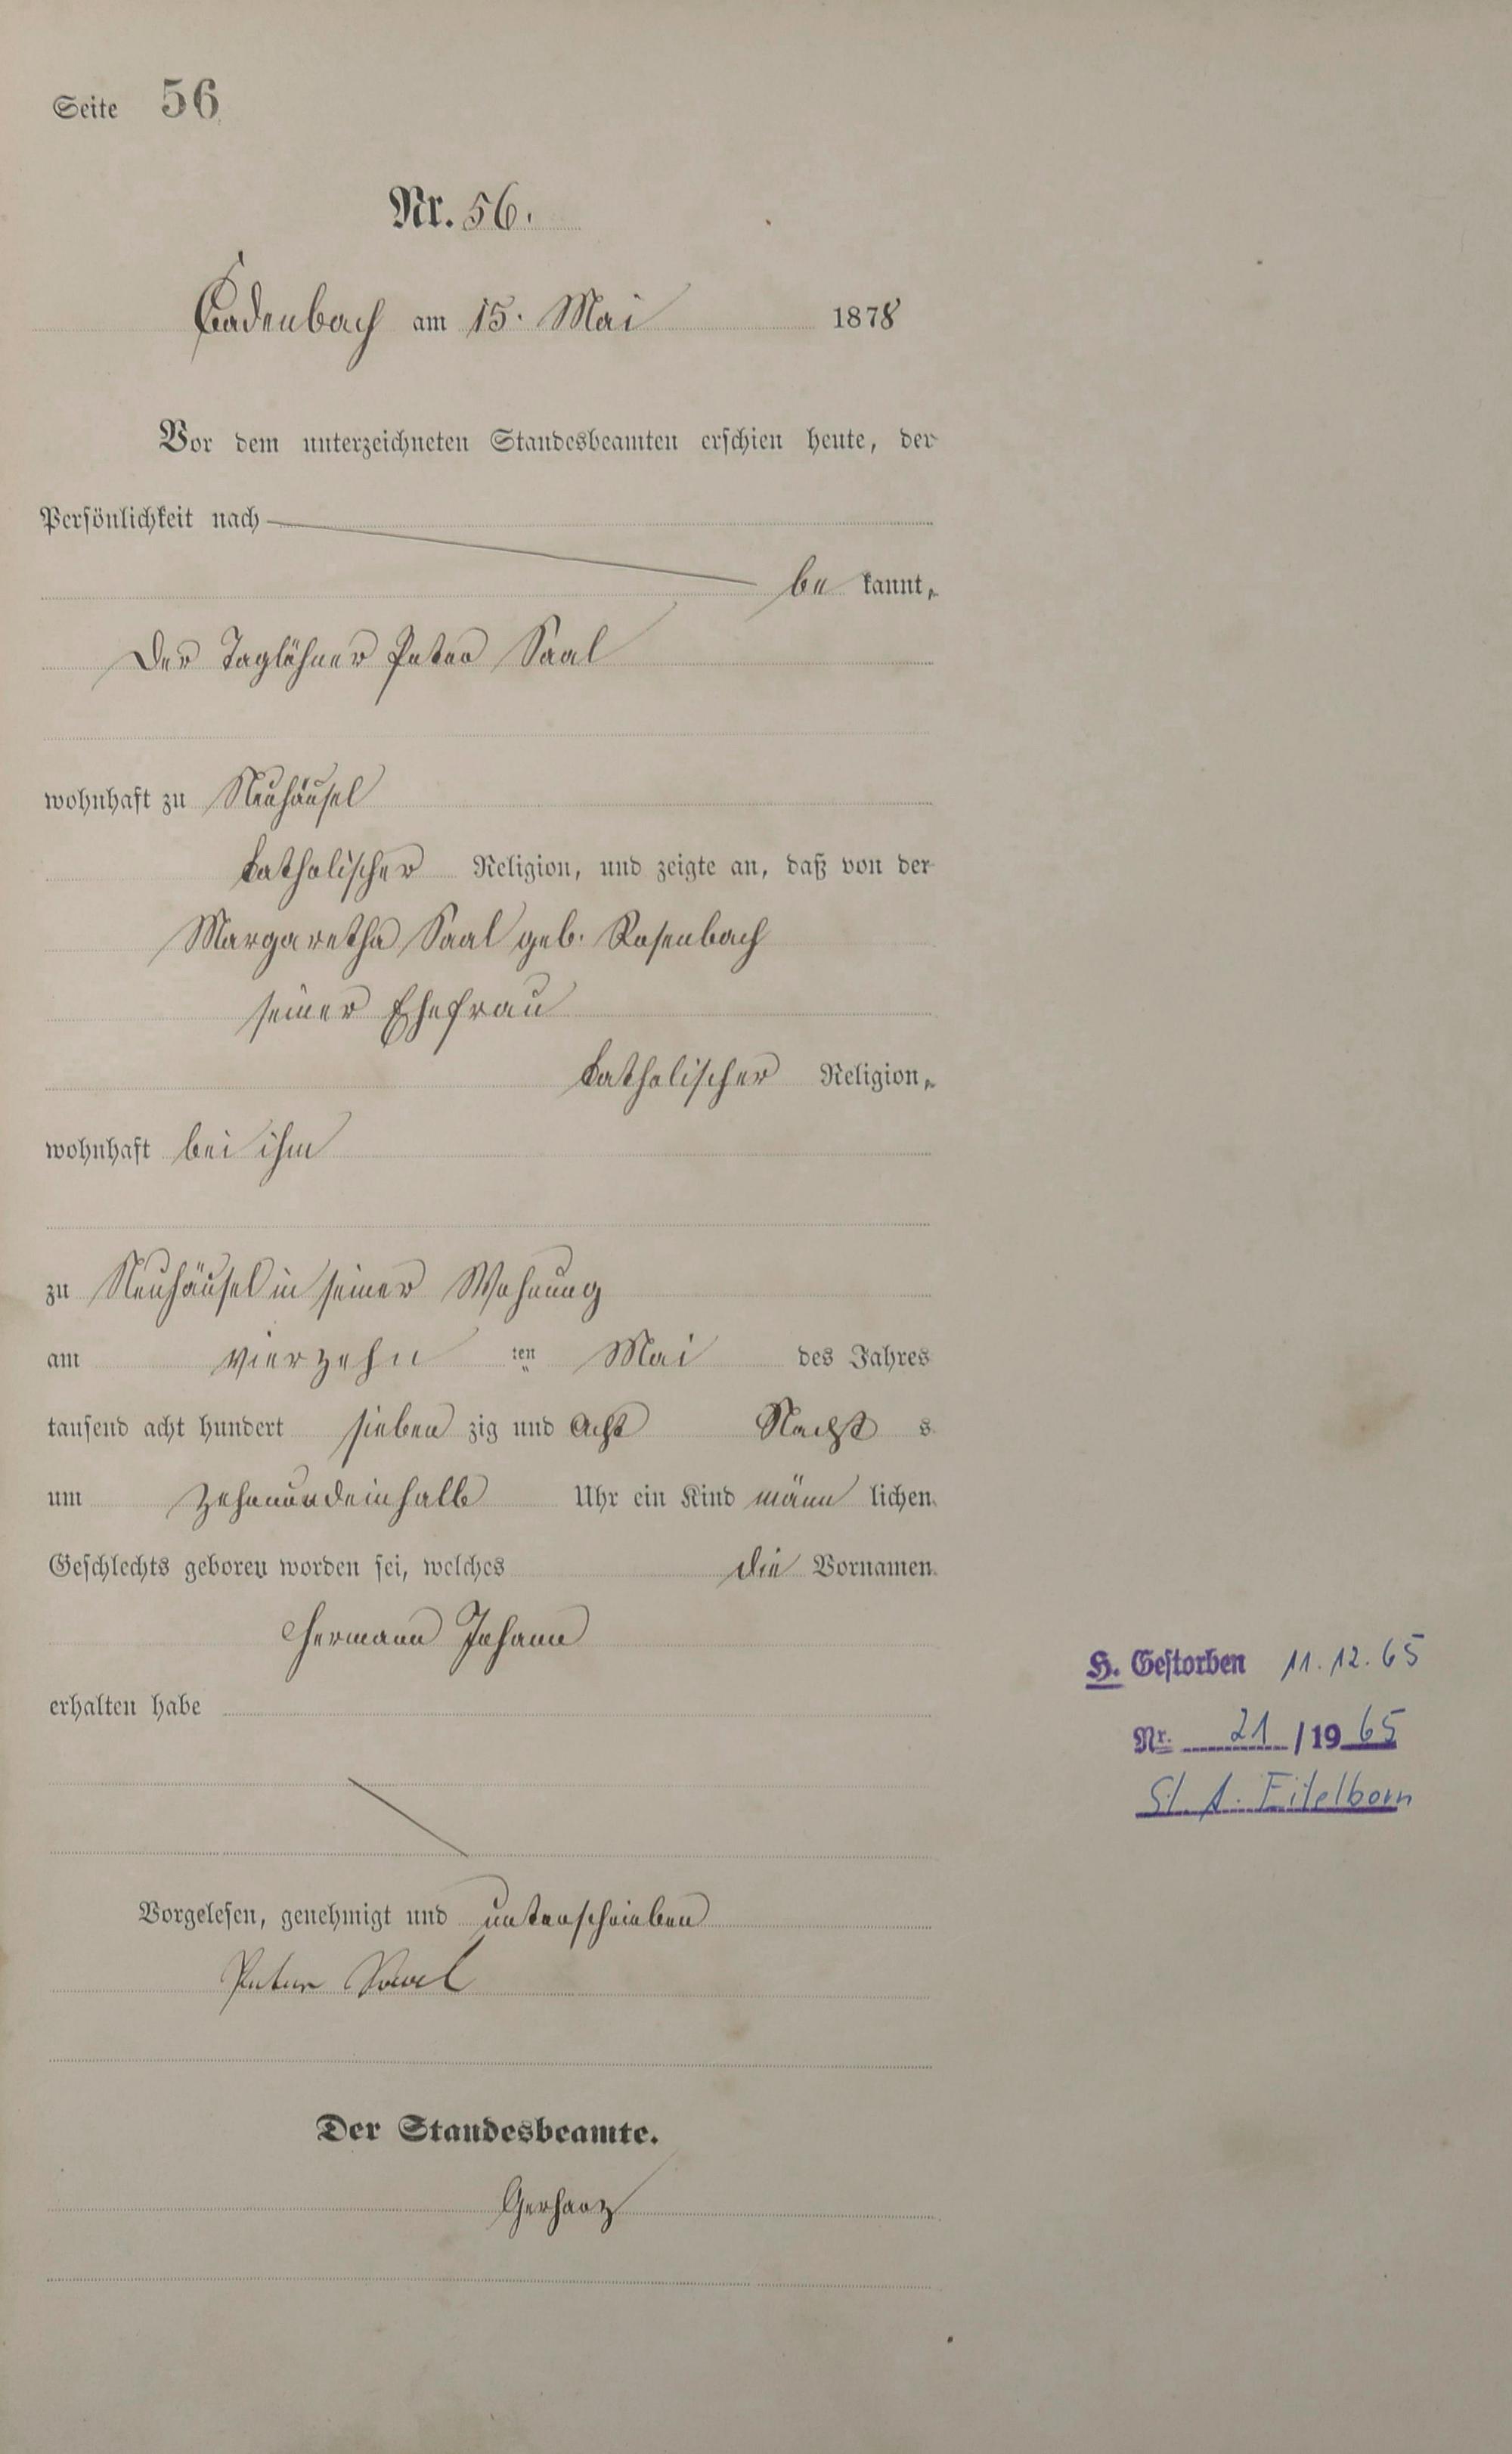 Seite 56
Nr. 56.
Cadenbach am 15. Mai 1878
Vor dem unterzeichneten Standesbeamten erschien heute, der
Persönlichkeit nach
be kannt,
Der Taglöhner Peter Saal
wohnhaft zu Neuhäusel
katholischer Religion, und zeigte an, daß von der
Margaretha Saal geb. Rosenbach
seiner Ehefrau
katholischer Religion,
wohnhaft bei ihm
zu Neuhäusel in seiner Wohnung
am vierzehn ten Mai des Jahres
tausend acht hundert sieben zig und acht Nacht s
um zehnundeinhalb Uhr ein Kind männ lichen
Geschlechts geboren worden sei, welches die Vornamen
Hermann Johann
erhalten habe
Vorgelesen, genehmigt und unterschrieben
Peter Saal
Der Standesbeamte.
Gerharz
H. Gestorben 11.12.65
Nr. 21 /19 65
St. A. Eitelborn